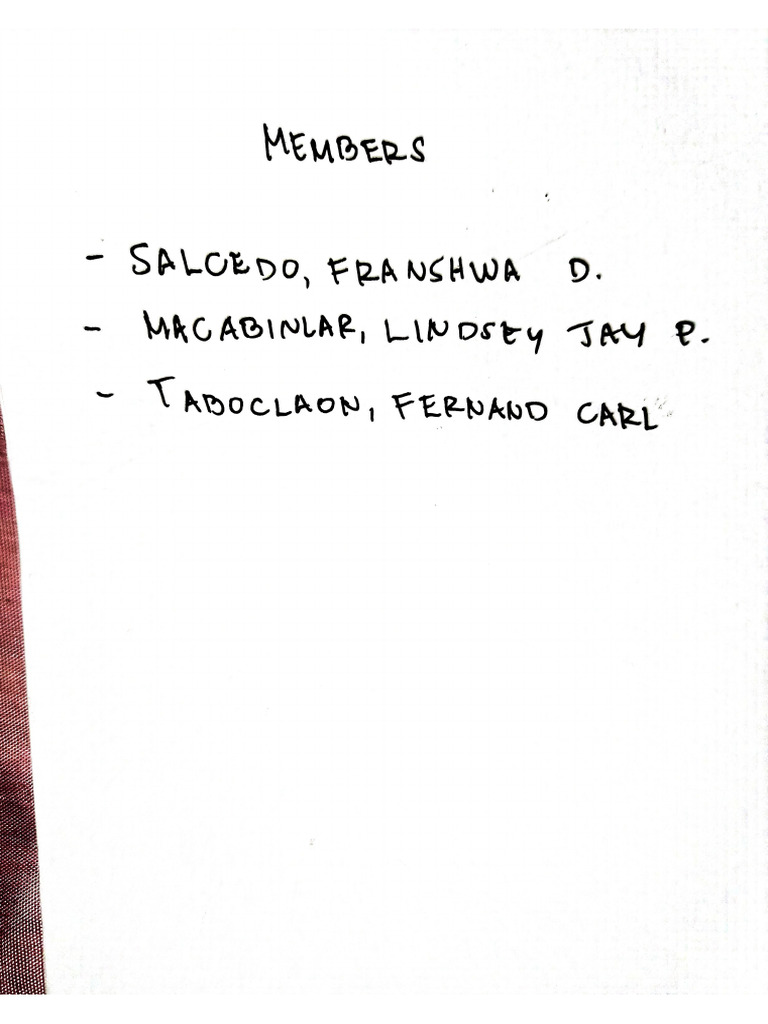 MEMBERS
- SALCEDO, FRANSHWA D.
- MACABINLAR, LINDSEY JAY P.
- TABOCLAON, FERNAND CARL